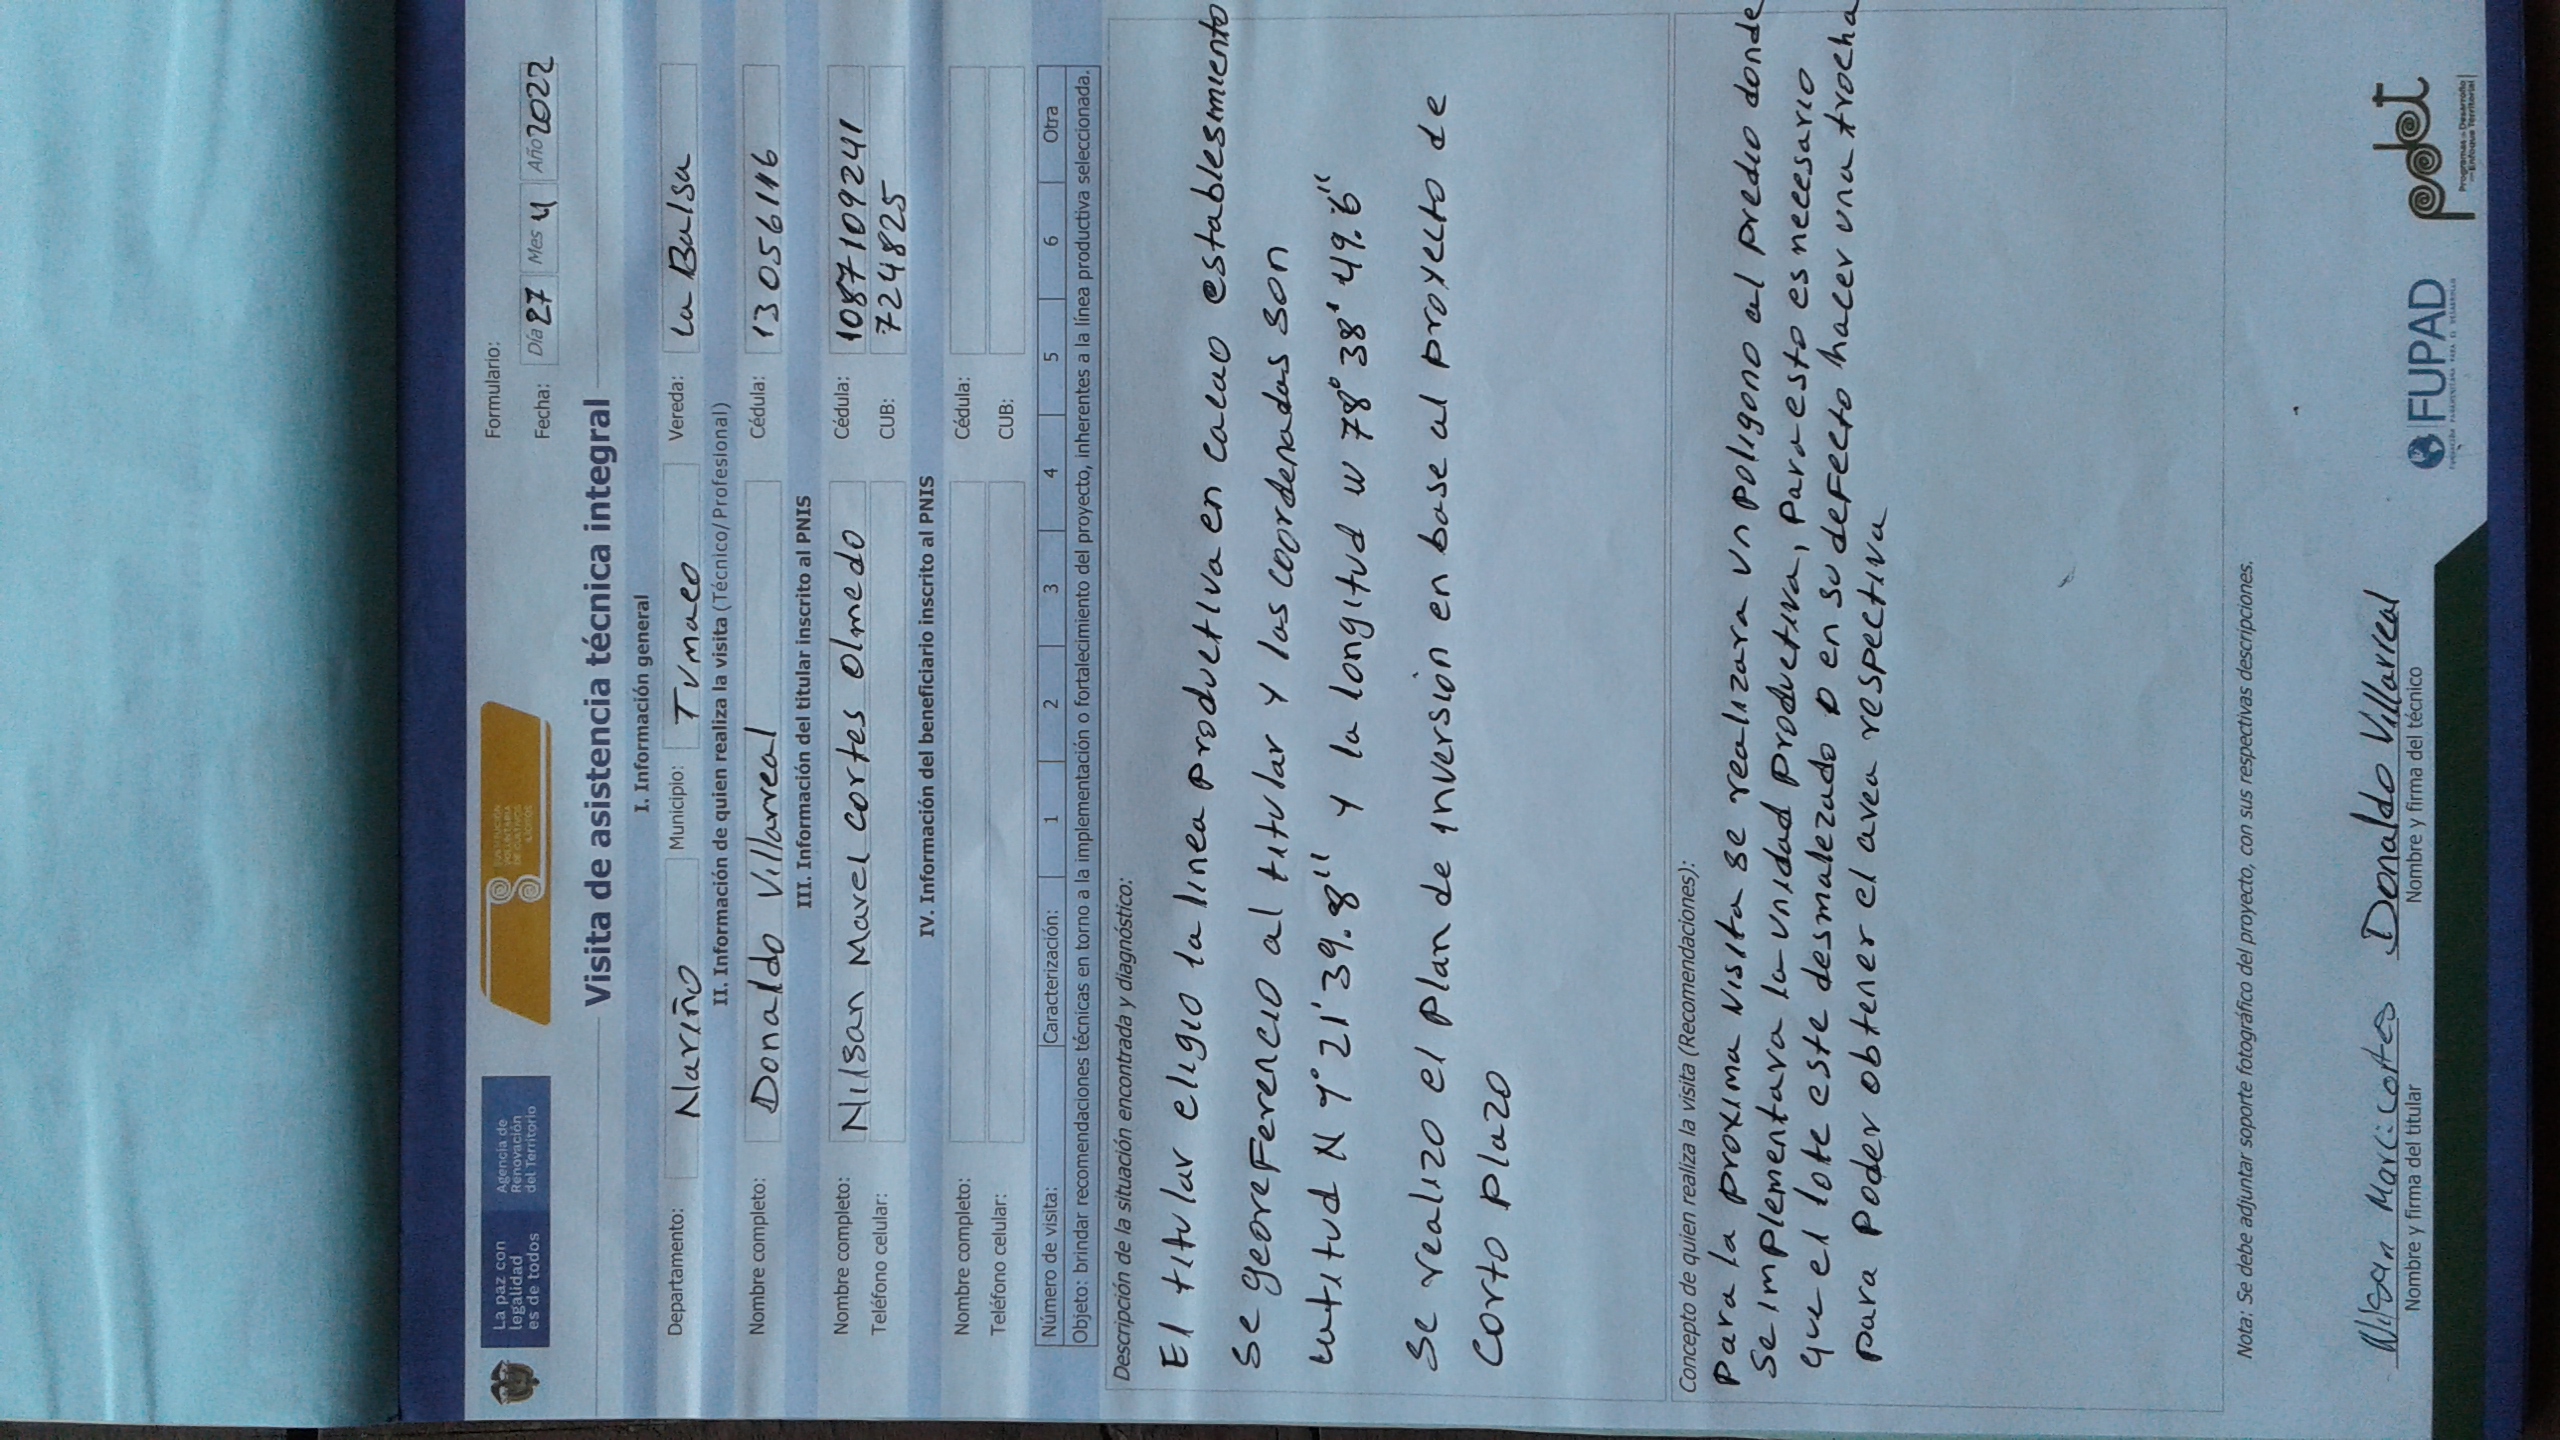 La paz con
legalidad
es de todos
Agencia de
Renovación
del Territorio
SUSTITUCIÓN
VOLUNTARIA
DE CULTIVOS
ILÍCITOS
Formulario:
Fecha: Día 27 Mes 4 Año 2022
Visita de asistencia técnica integral
I. Información general
Departamento: Nariño Municipio: Tumaco Vereda: La Balsa
II. Información de quien realiza la visita (Técnico/Profesional)
Nombre completo: Donaldo Villarreal Cédula: 13056116
III. Información del titular inscrito al PNIS
Nombre completo: Nilsan Marel cortes olmedo Cédula: 1087109241
Teléfono celular: CUB: 724825
IV. Información del beneficiario inscrito al PNIS
Nombre completo: Cédula:
Teléfono celular: CUB:
Número de visita: Caracterización: 1 2 3 4 5 6 Otra
Objeto: brindar recomendaciones técnicas en torno a la implementación o fortalecimiento del proyecto, inherentes a la línea productiva seleccionada.
Descripción de la situación encontrada y diagnóstico:
El titular eligio la linea productiva en cacao establesmiento
Se georeferencio al titular y las coordenadas son
Latitud N 1° 21' 39.8" y la longitud W 78° 38' 49.6"
Se realizo el plan de inversion en base al proyecto de
Corto plazo
Concepto de quien realiza la visita (Recomendaciones):
Para la proxima visita se realizara un poligono al predio donde
se implementara la unidad productiva, para esto es necesario
que el lote este desmalezado o en su defecto hacer una trocha
para poder obtener el area respectiva
Nota: Se debe adjuntar soporte fotográfico del proyecto, con sus respectivas descripciones.
Nilsan Marel cortes Donaldo Villarreal
Nombre y firma del titular Nombre y firma del técnico
FUPAD
FUNDACIÓN PANAMERICANA PARA EL DESARROLLO
pdet
Programas de Desarrollo
con Enfoque Territorial